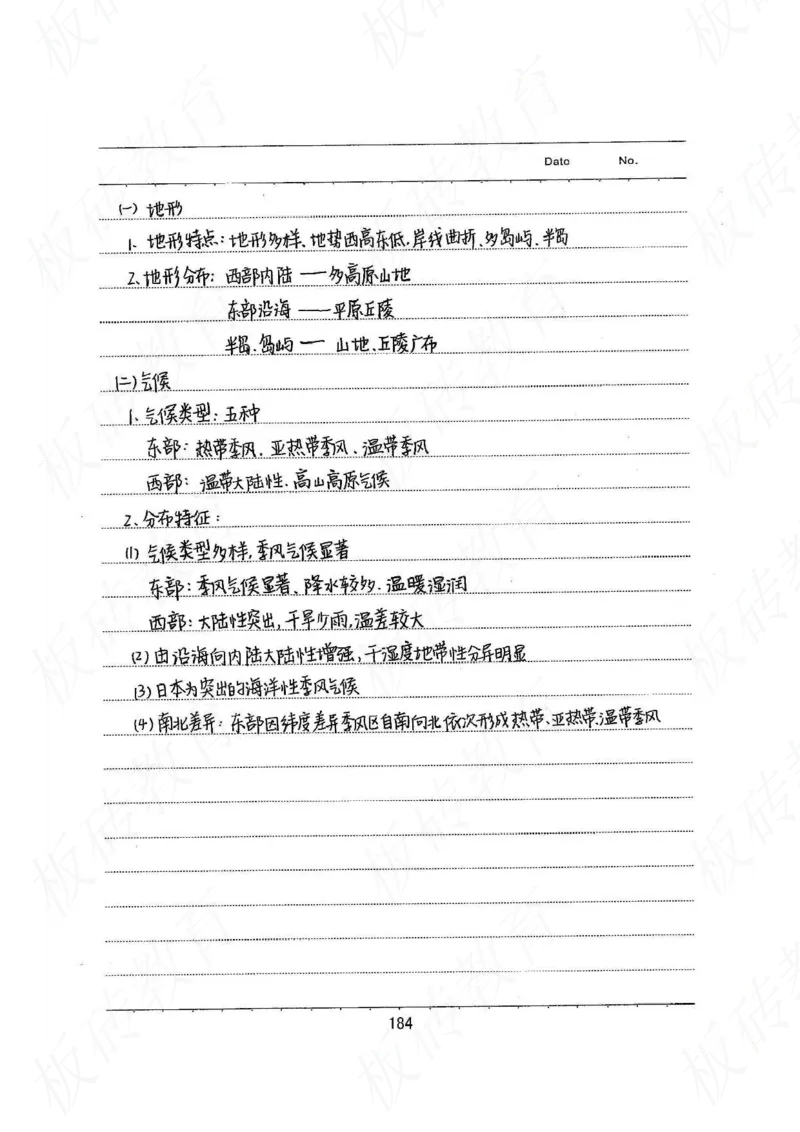 Date No.
(一) 地形
1、地形特点：地形多样、地势西高东低，岸线曲折、多岛屿、半岛
2、地形分布：西部内陆——多高原山地
东部沿海——平原丘陵
半岛、岛屿——山地、丘陵广布
(二) 气候
1、气候类型：五种
东部：热带季风、亚热带季风、温带季风
西部：温带大陆性、高山高原气候
2、分布特征：
(1) 气候类型多样，季风气候显著
东部：季风气候显著、降水较多、温暖湿润
西部：大陆性突出，干旱少雨，温差较大
(2) 由沿海向内陆大陆性增强，干湿度地带性分异明显
(3) 日本为突出的海洋性季风气候
(4) 南北差异：东部因纬度差异季风区自南向北依次形成热带、亚热带、温带季风
184
板砖教育